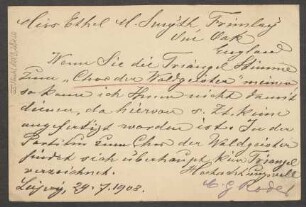 Miss Ethel M. Smyth Frimley
One Oak
England
Wenn Sie die Triangel Stimme
zum "Chor der Waldgeister" meinen,
so kann ich Ihnen nicht damit
dienen, da hiervon s. Zt. keine
angefertigt worden ist. In der
Partitur zum Chor der Waldgeister
findet sich überhaupt kein Triangel
verzeichnet.
Hochachtungsvoll
Leipzig, 29.7.1903. C G Röder